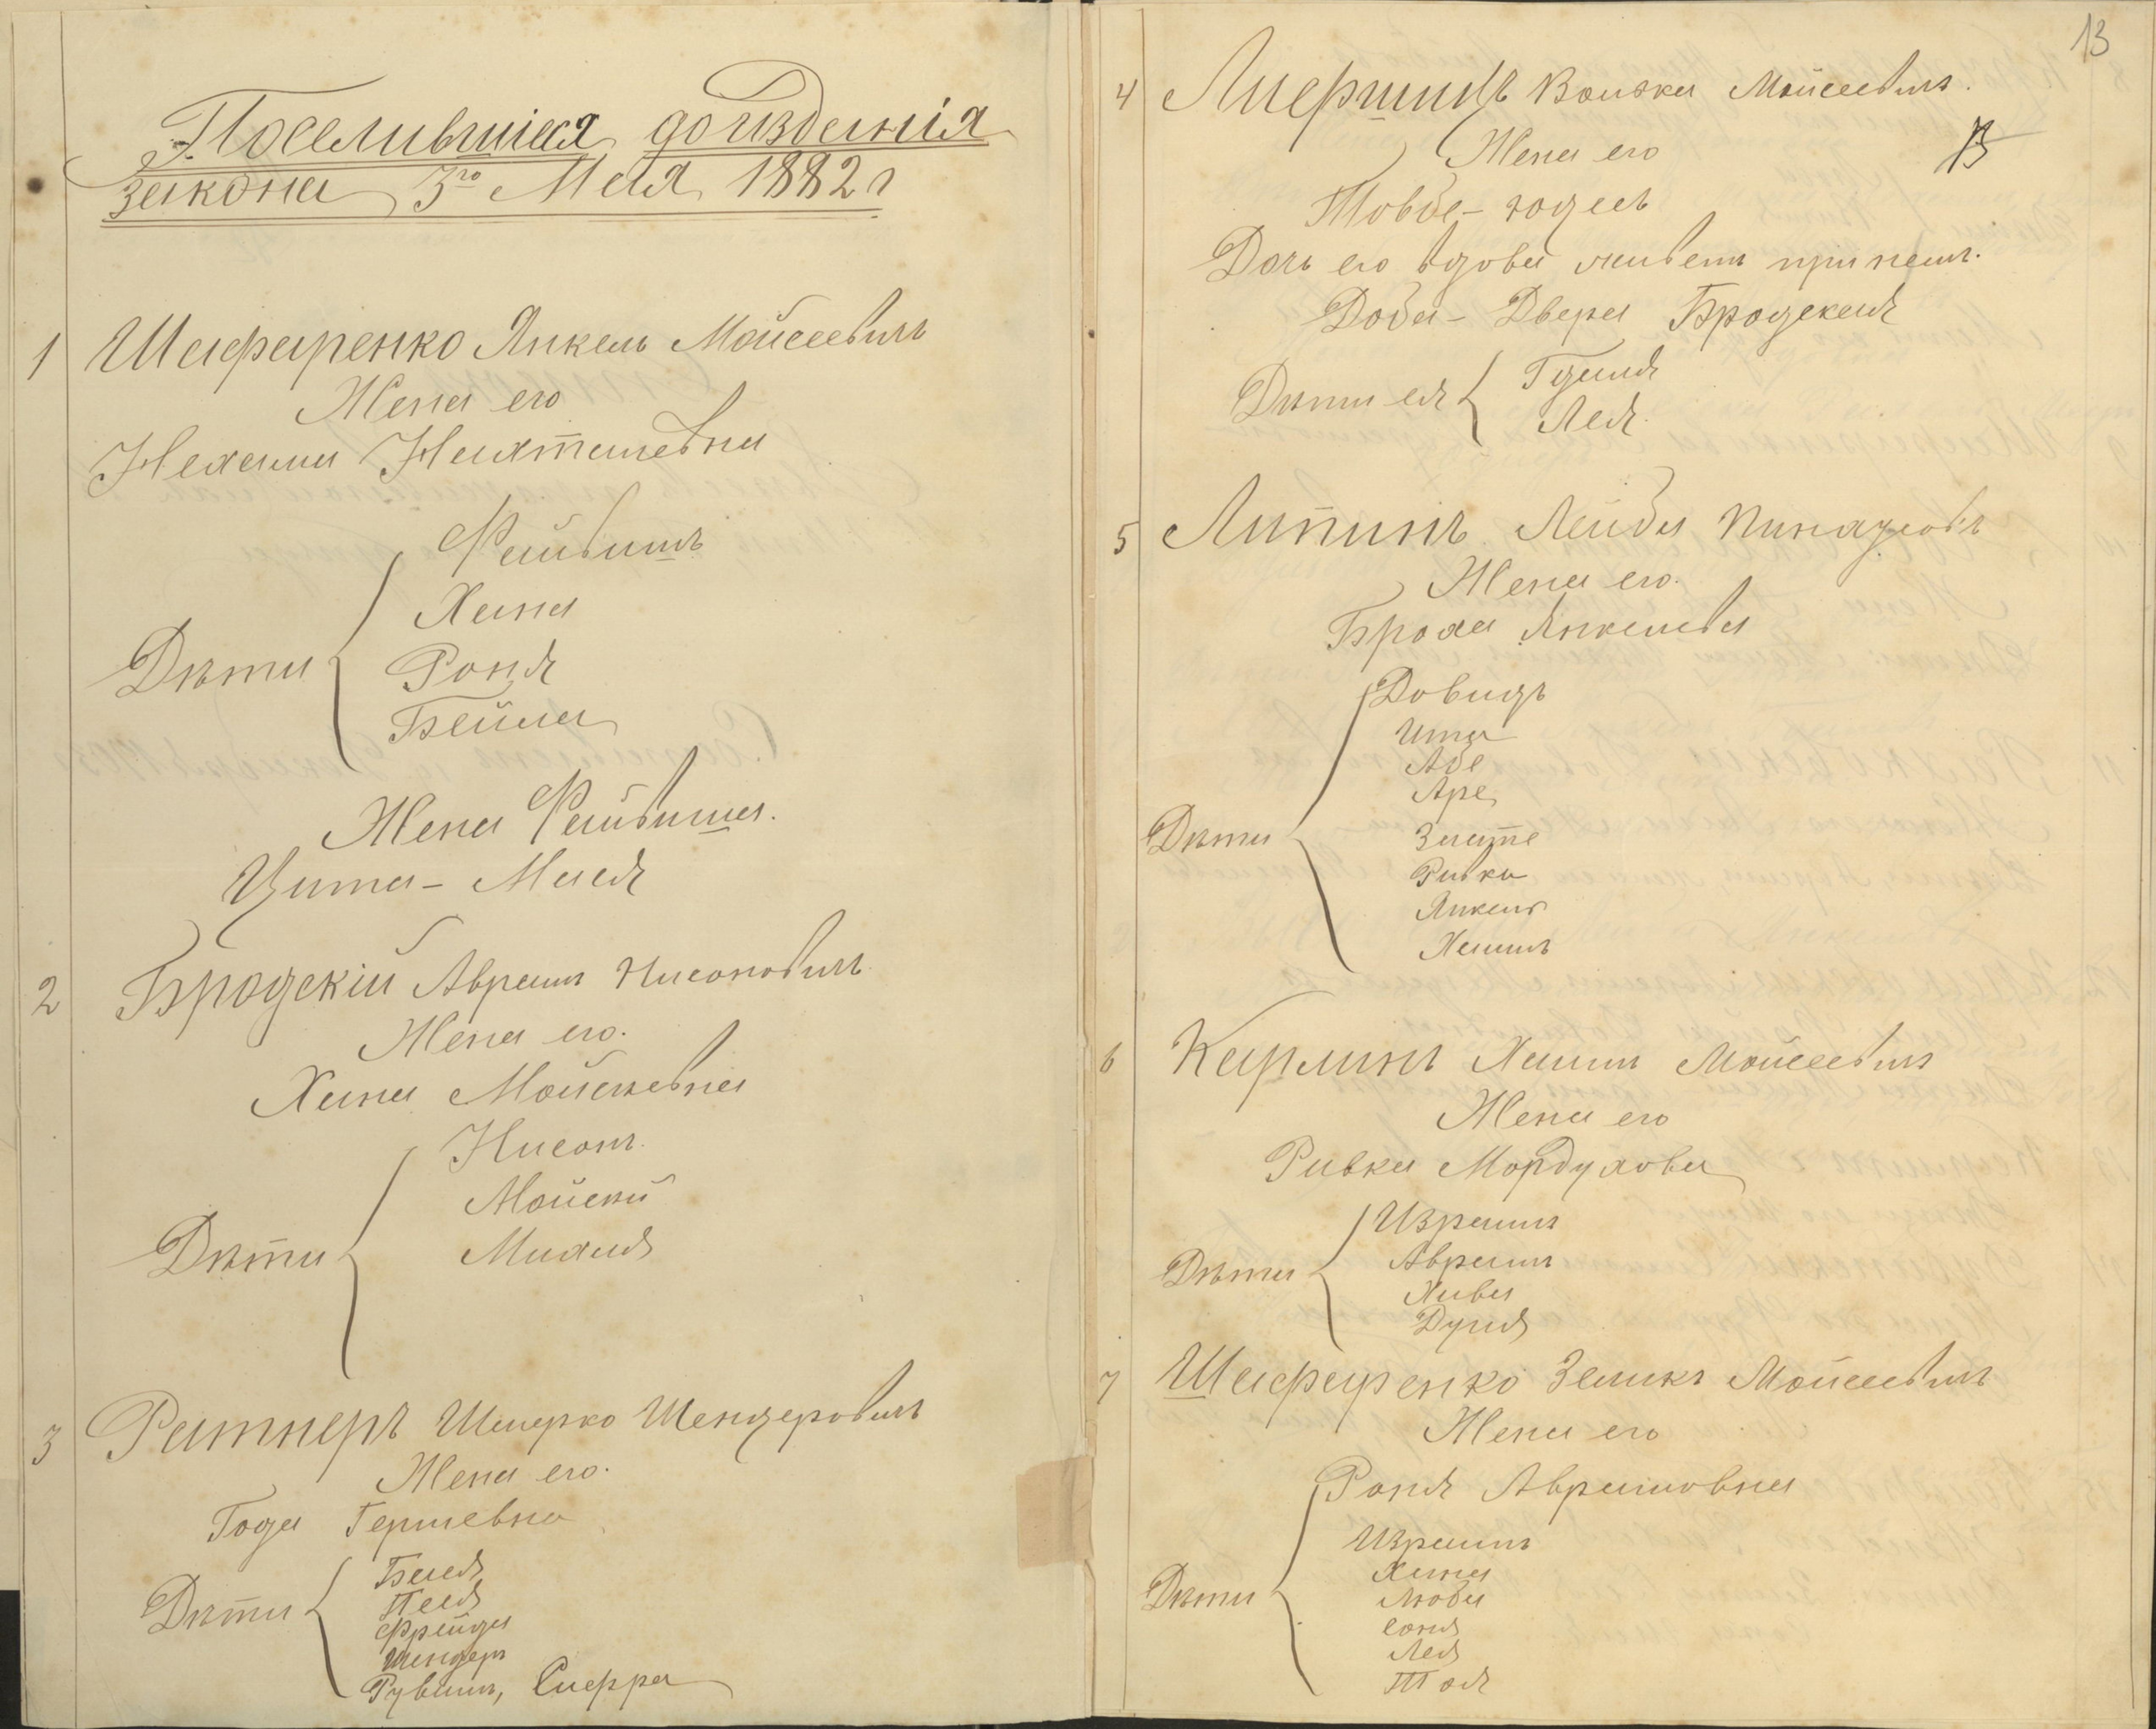 Поселившіеся до изданія
закона 3го Мая 1882 г
1 Шафаренко Янкель Мойсеевичъ
Жена его
Нехама Нахтшевна
Файвишъ
Хана
Дѣти
Роня
Бейла
Жена Файвиша.
Цита - Мася
2 Бродскій Аврамъ Нисоновичъ
Жена его.
Хана Мойсеевна
Нисонъ.
Мойсей
Дѣти
Михля
3 Ратнеръ Шмерко Шендеровичъ
Жена его.
Года Гершевна
Бася
Дѣти
Песя
Фрейда
Шендеръ
Рувимъ, Сифра
13
4 Лифшицъ Вольжа Мойсеевичъ.
13
Жена его
Товбе - Юдесь
Дочь его вдова живетъ при немъ.
Доба - Двера Бродская
Дѣти ея
Гдаля
Лея.
5 Липинъ Лейба Пинхасовъ
Жена его.
Броха Янкелева
Довидъ
Ита
Абе
Аре
Дѣти
Злате
Ривка
Янкель
Хаимъ
6 Карлинъ Хаимъ Мойсеевичъ
Жена его
Ривка Мордухова
Израиль
Аврамъ
Дѣти
Хива
Душя
7 Шафаренко Зеликъ Мойсеевичъ
Жена его
Роня Аврамовна
Израиль
Хана
Дѣти
Люба
Соня
Лея
Тоя